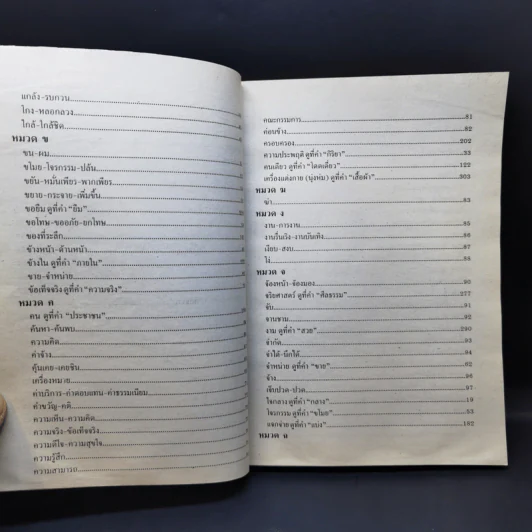 แกล้ง-รบกวน
โกง-หลอกลวง
ใกล้-ใกล้ชิด
หมวด ข
ขน-ผม
ขโมย-โจรกรรม-ปล้น
ขยัน-หมั่นเพียร-พากเพียร
ขยาย-กระจาย-เพิ่มขึ้น
ขอยืม ดูที่คำ "ยืม"
ขอโทษ-ขออภัย-ยกโทษ
ของที่ระลึก
ข้างหน้า-ด้านหน้า
ข้างใน ดูที่คำ "ภายใน"
ขาย-จำหน่าย
ข้อเท็จจริง ดูที่คำ "ความจริง"
หมวด ค
คน ดูที่คำ "ประชาชน"
ค้นหา-ค้นพบ
ความคิด
ค่าจ้าง
คุ้นเคย-เคยชิน
เครื่องหมาย
ค่าบริการ-ค่าตอบแทน-ค่าธรรมเนียม
คำขวัญ-คติ
ความเห็น-ความคิด
ความจริง-ข้อเท็จจริง
ความดีใจ-ความสุขใจ
ความรู้สึก
ความสามารถ
คณะกรรมการ 81
ค่อนข้าง 82
ครอบครอง 202
ความประพฤติ ดูที่คำ "กิริยา" 33
คนเดียว ดูที่คำ "โดดเดี่ยว" 122
เครื่องแต่งกาย (นุ่งห่ม) ดูที่คำ "เสื้อผ้า" 303
หมวด ฆ
ฆ่า 83
หมวด ง
งาน-การงาน 85
งานรื่นเริง-งานบันเทิง 86
เงียบ-สงบ 87
โง่ 88
หมวด จ
จ้องหน้า-จ้องมอง 90
จริยศาสตร์ ดูที่คำ "ศีลธรรม" 277
จับ 91
จานชาม 92
งาม ดูที่คำ "สวย" 290
จำกัด 93
จำได้-นึกได้ 94
จำหน่าย ดูที่คำ "ขาย" 62
จ้าง 96
เจ็บปวด-ปวด 97
ใจกลาง ดูที่คำ "กลาง" 19
โจรกรรม ดูที่คำ "ขโมย" 53
แจกจ่าย ดูที่คำ "แบ่ง" 162
หมวด ฉ